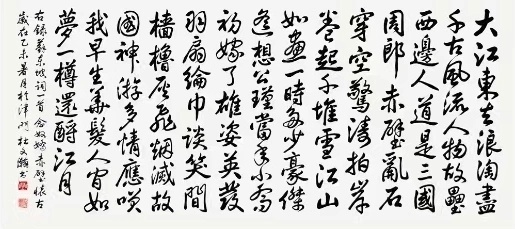 大江東去浪淘盡
千古風流人物故壘
西邊人道是三國
周郎赤壁亂石
穿空驚濤拍岸
卷起千堆雪江山
如畫一時多少豪傑
遙想公瑾當年小喬
初嫁了雄姿英發
羽扇綸巾談笑間
檣櫓灰飛煙滅故
國神游多情應笑
我早生華髮人間如
夢一樽還酹江月
右錄蘇东坡詞一首念奴嬌赤壁懷古
歲在乙未暑月於津門杜文書